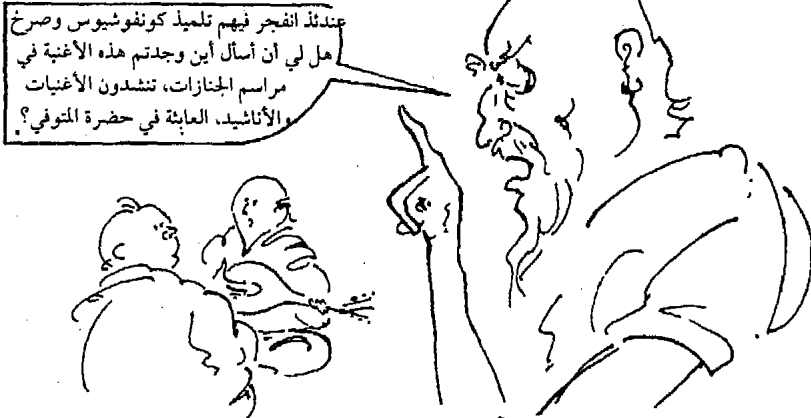 عندئذ انفجر فيهم تلميذ كونفوشيوس وصرخ
هل لي أن أسأل أين وجدتم هذه الأغنية في
مراسم الجنازات، تنشدون الأغنيات
والأناشيد، العابثة في حضرة المتوفي؟